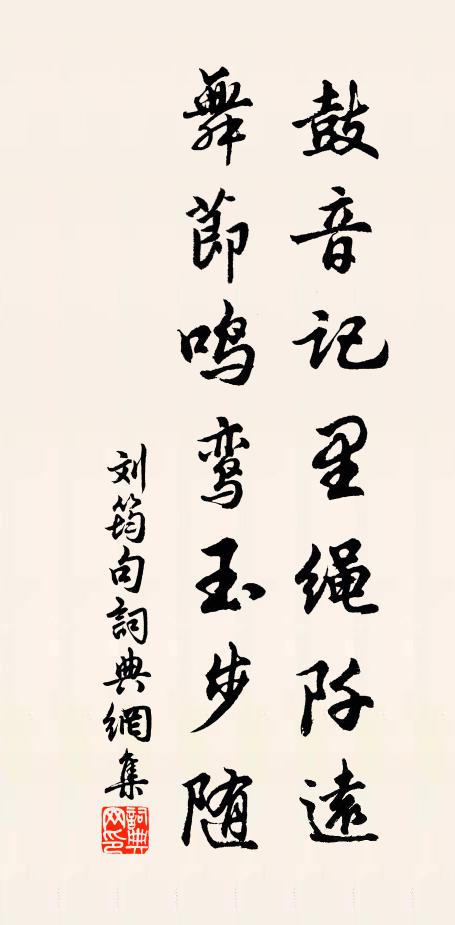 鼓音记里绳阡遠
舞節鸣鸾玉步随
刘筠句詞典網集
詞典网印